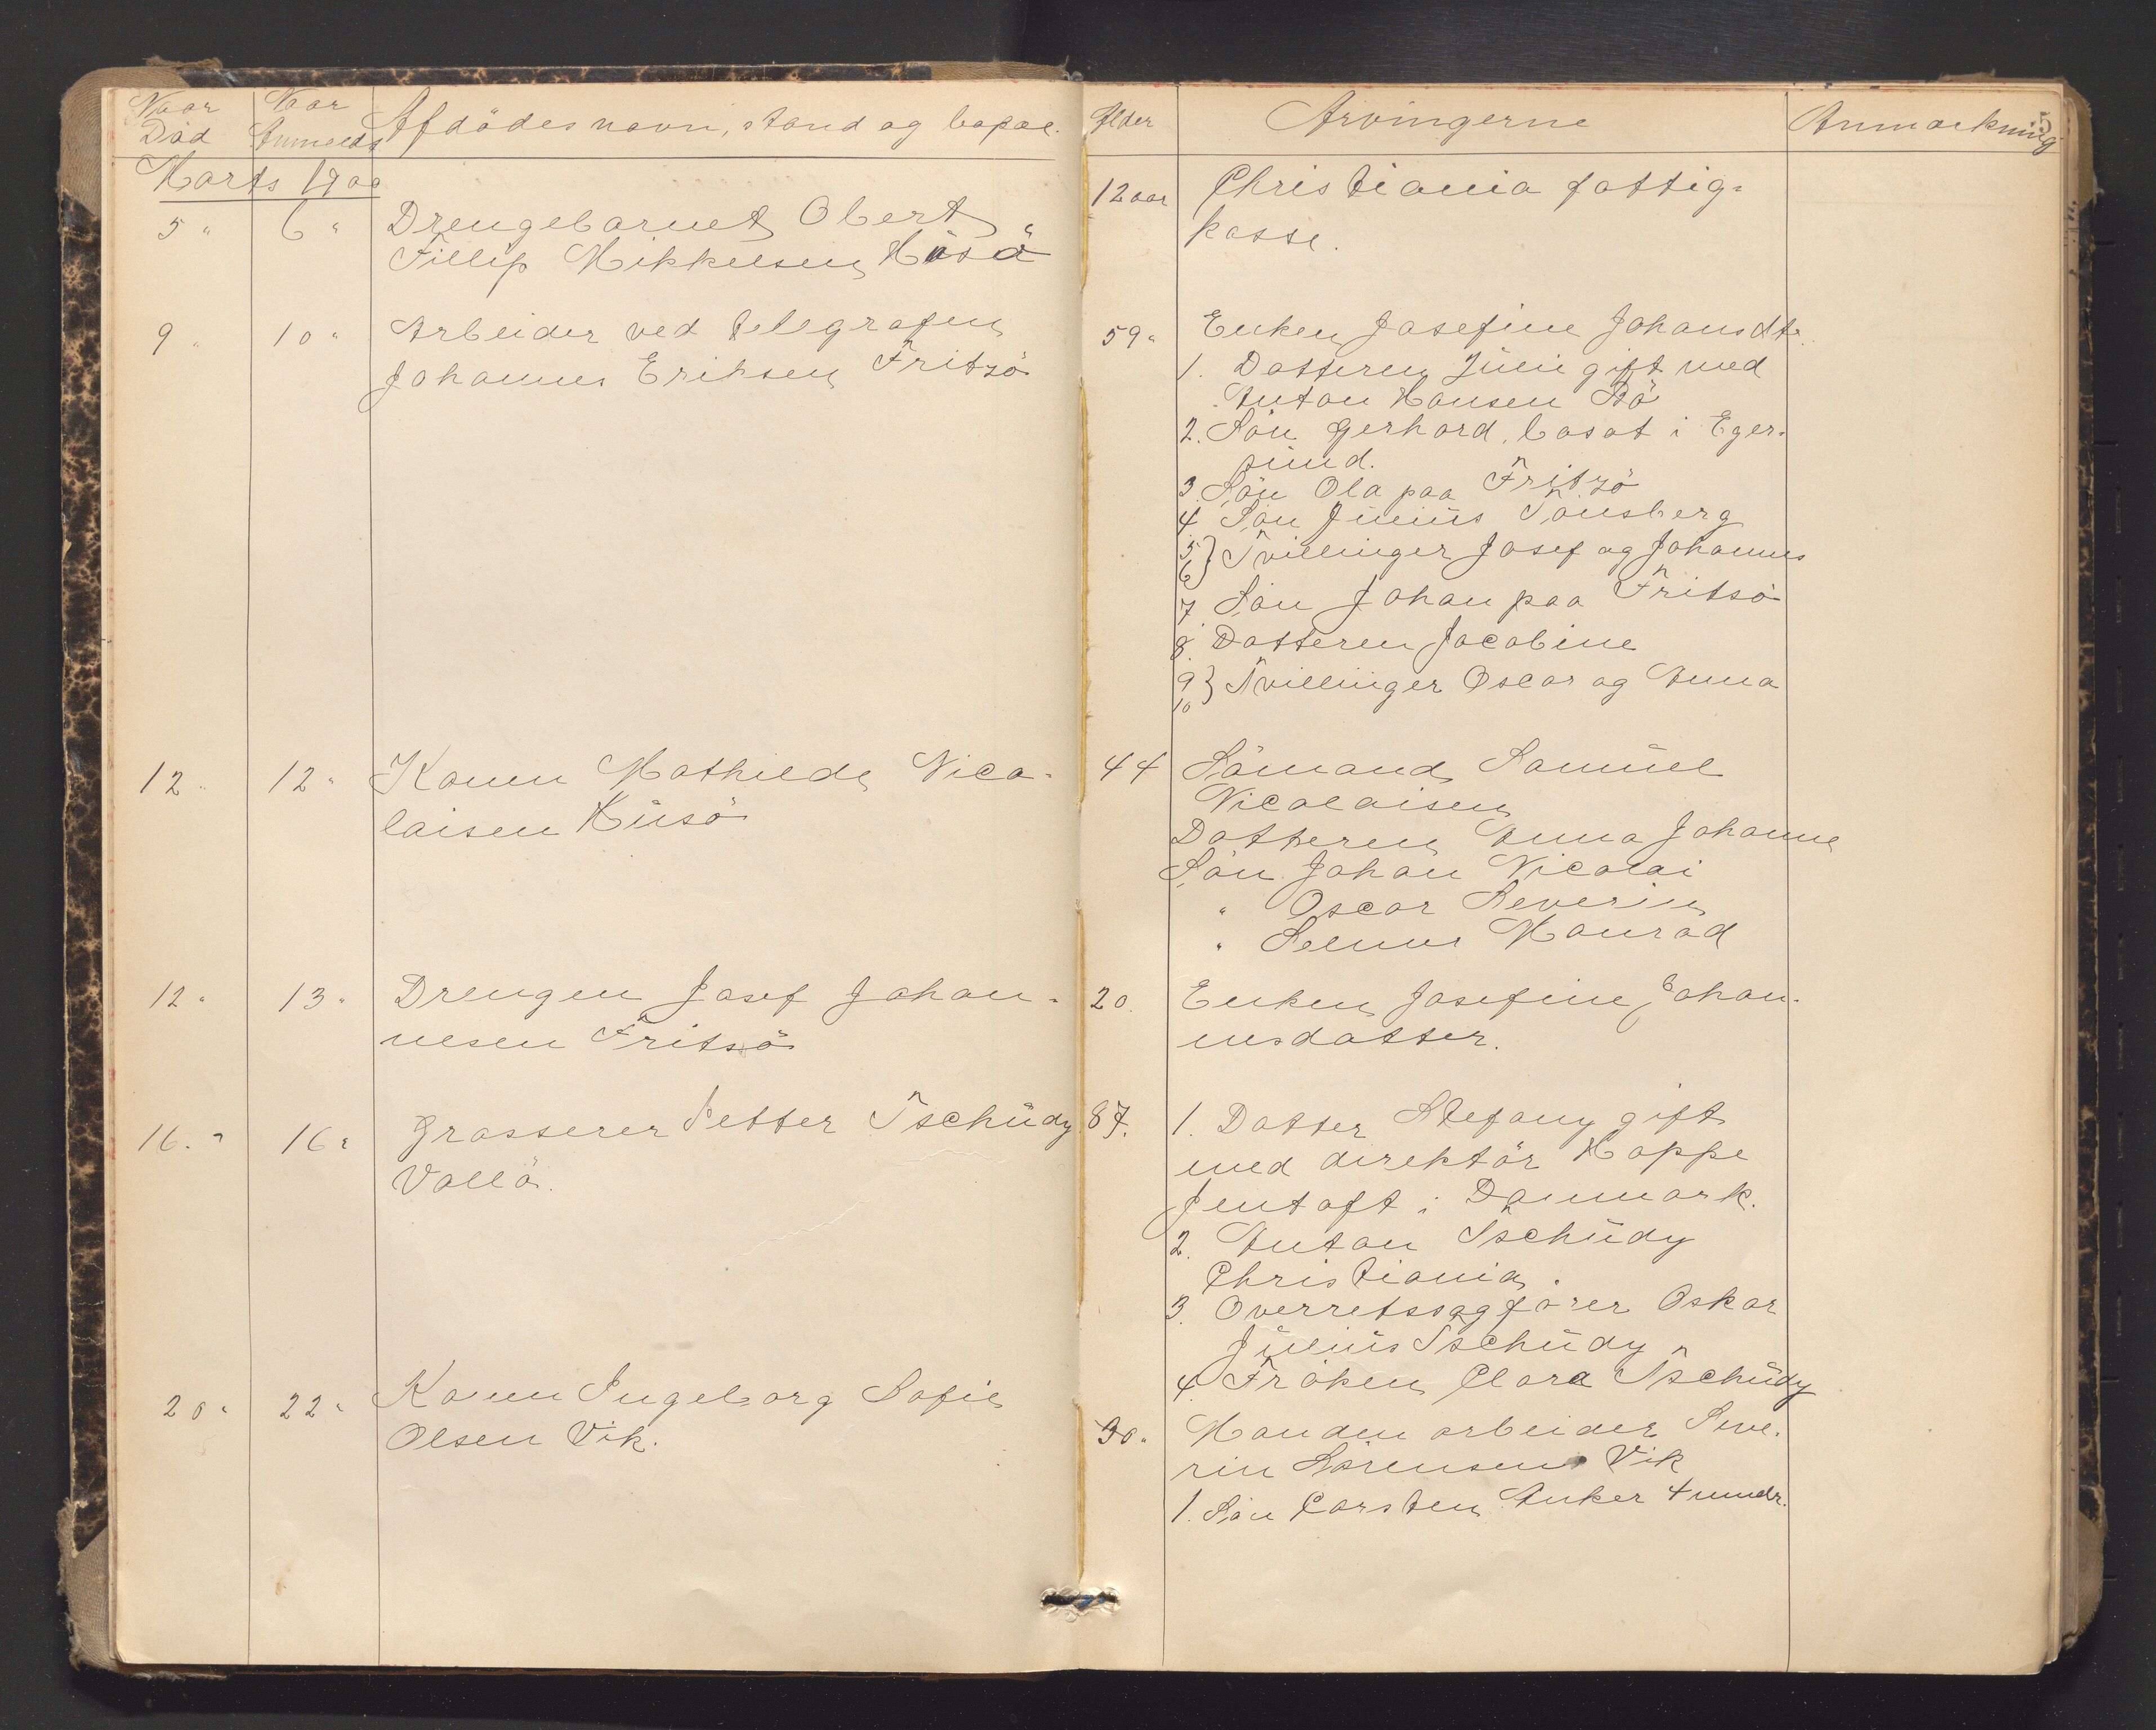 Naar Død
Naar Anmeldt
Afdødes navn, stand og bopæl.
Alder
Arvingerne
Anmærkning
5
Marts 1900
5 " 6 " Drengebarnet Obert
Fillip Mikkelsen Husø
12 aar Christiania fattig-
kasse.
9 " 10 " Arbeider ved telegrafen
Johannes Eriksen Fritzö
59 " Enken Josefine Johansdtr.
1. Datteren Julie gift med
Anton Hansen Bö
2. Sön Gerhard, bosat i Eger-
sund.
3. Sön Ola paa Fritzö
4 Sön Julius Tönsberg
5 6 } Tvillinger Josef og Johannes
7 Sön Johan paa Fritsö
8. Datteren Jacobine
9 10 } Tvillinger Oscar og Anna
12 " 12 " Konen Mathilde Nico-
laisen Husö
44 Sömand Samuel
Nicolaisen
Datteren Anna Johanne
Sön Johan Nicolai
" Oscar Severin
" Selmer Konrad
12 " 13 " Drengen Josef Johan-
nesen Fritsö
20. Enken Josefine Johan-
nesdatter.
16. " 16 " Grosserer Petter Tschudy
Vallö.
87. 1. Datter Stefany gift
med direktör Hoppe
Jentoft i Danmark.
2. Anton Tschudy
Christiania.
3. Overretssagförer Oskar
Julius Tschudy
4. Fröken Clara Tschudy
20 " 22 " Konen Ingeborg Sofie
Olsen Vik.
30. " Manden arbeider Seve-
rin Sörensen Vik
1. Sön Carsten Anker 4 mndr.